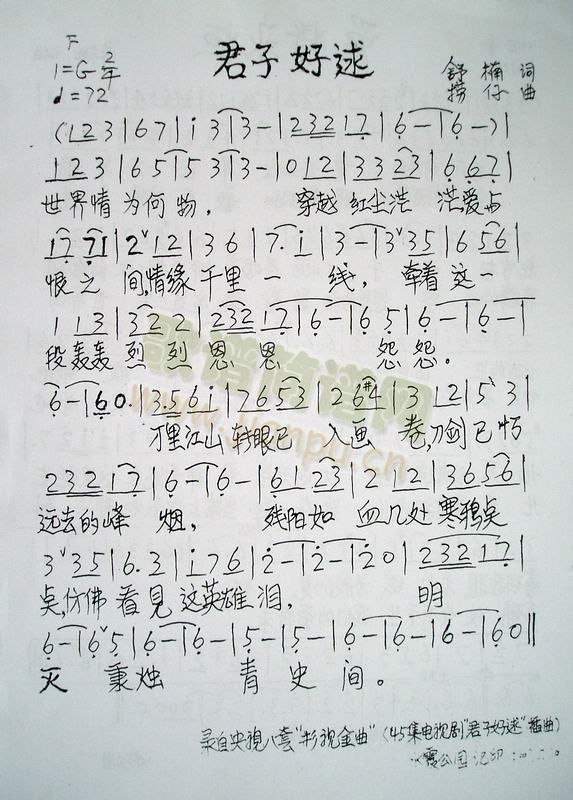 F
君子好逑
1=G 2/4
♩=72
舒楠 词
捞仔 曲
(1 2 3|6 7|i 3|3-|2 3 2 1 7|6-|6-)|
1 2 3|6 5|5 3|3-|0 1 2|3 3 2 3|6 6 7|
世界情为何物, 穿越红尘浩 茫爱与
1 7 7 1|2ˇ1 2|3 6|7. i|3-|3ˇ3 5|6 5 6|
恨之间,情缘千里一线, 牵着这一
1 1 3|3 2 2|2 3 2 1 7|6-|6 5|6-|6-|
段轰轰烈烈恩恩 怨怨。
6-|6 0.|3 5 6 i|7 6 5 3|2 6 #4|3 1 2|5ˇ3|
万里江山转眼已入画卷,刀剑已朽
2 3 2 1 7|6-|6-|6 1 2 3|2 1 2|3 6 5 6|
远去的峰烟, 残阳如血几处寒鸦点
3ˇ3 5|6. 3|i 7 6|2-|2-|2 0|2 3 2 1 7|
点,仿佛看見这英雄泪, 明
6-|6ˇ5|6-|6-|5-|5-|6-|6-|6-|6 0‖
灭 秉烛 青史间。
歌谱简谱网
www.jianpu.cn
录自央視八套"影視金曲"(45集电视剧"君子好逑"插曲)
公园记印